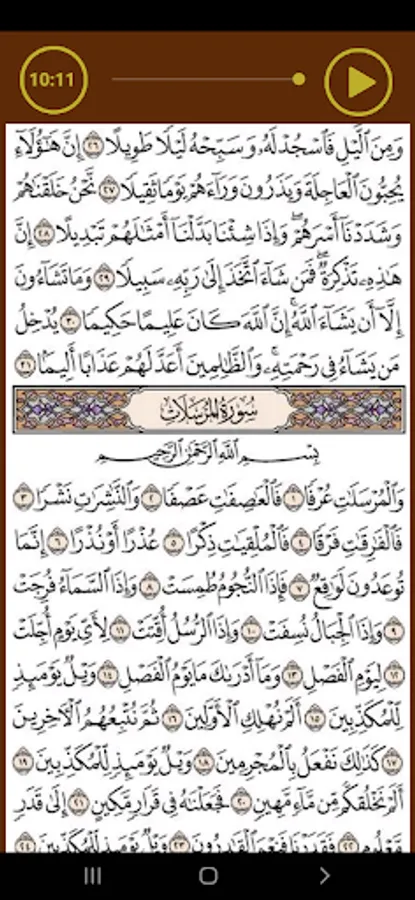 10:11
وَمِنَ ٱلَّيْلِ فَٱسْجُدْ لَهُۥ وَسَبِّحْهُ لَيْلًا طَوِيلًا ٢٦ إِنَّ هَٰٓؤُلَآءِ
يُحِبُّونَ ٱلْعَاجِلَةَ وَيَذَرُونَ وَرَآءَهُمْ يَوْمًا ثَقِيلًا ٢٧ نَّحْنُ خَلَقْنَٰهُمْ
وَشَدَدْنَآ أَسْرَهُمْ ۖ وَإِذَا شِئْنَا بَدَّلْنَآ أَمْثَٰلَهُمْ تَبْدِيلًا ٢٨ إِنَّ
هَٰذِهِۦ تَذْكِرَةٌ ۖ فَمَن شَآءَ ٱتَّخَذَ إِلَىٰ رَبِّهِۦ سَبِيلًا ٢٩ وَمَا تَشَآءُونَ
إِلَّآ أَن يَشَآءَ ٱللَّهُ ۚ إِنَّ ٱللَّهَ كَانَ عَلِيمًا حَكِيمًا ٣٠ يُدْخِلُ
مَن يَشَآءُ فِى رَحْمَتِهِۦ ۚ وَٱلظَّٰلِمِينَ أَعَدَّ لَهُمْ عَذَابًا أَلِيمًۢا ٣١
سُورَةُ المُرْسَلَاتِ
بِسْمِ ٱللَّهِ ٱلرَّحْمَٰنِ ٱلرَّحِيمِ
وَٱلْمُرْسَلَٰتِ عُرْفًا ١ فَٱلْعَٰصِفَٰتِ عَصْفًا ٢ وَٱلنَّٰشِرَٰتِ نَشْرًا ٣
فَٱلْفَٰرِقَٰتِ فَرْقًا ٤ فَٱلْمُلْقِيَٰتِ ذِكْرًا ٥ عُذْرًا أَوْ نُذْرًا ٦ إِنَّمَا
تُوعَدُونَ لَوَٰقِعٌ ٧ فَإِذَا ٱلنُّجُومُ طُمِسَتْ ٨ وَإِذَا ٱلسَّمَآءُ فُرِجَتْ
٩ وَإِذَا ٱلْجِبَالُ نُسِفَتْ ١٠ وَإِذَا ٱلرُّسُلُ أُقِّتَتْ ١١ لِأَىِّ يَوْمٍ أُجِّلَتْ
١٢ لِيَوْمِ ٱلْفَصْلِ ١٣ وَمَآ أَدْرَىٰكَ مَا يَوْمُ ٱلْفَصْلِ ١٤ وَيْلٌ يَوْمَئِذٍ
لِّلْمُكَذِّبِينَ ١٥ أَلَمْ نُهْلِكِ ٱلْأَوَّلِينَ ١٦ ثُمَّ نُتْبِعُهُمُ ٱلْءَاخِرِينَ
١٧ كَذَٰلِكَ نَفْعَلُ بِٱلْمُجْرِمِينَ ١٨ وَيْلٌ يَوْمَئِذٍ لِّلْمُكَذِّبِينَ ١٩
أَلَمْ نَخْلُقكُّم مِّن مَّآءٍ مَّهِينٍ ٢٠ فَجَعَلْنَٰهُ فِى قَرَارٍ مَّكِينٍ ٢١ إِلَىٰ قَدَرٍ
مَّعْلُومٍ ٢٢ فَقَدَرْنَا فَنِعْمَ ٱلْقَٰدِرُونَ ٢٣ وَيْلٌ يَوْمَئِذٍ لِّلْمُكَذِّبِينَ ٢٤